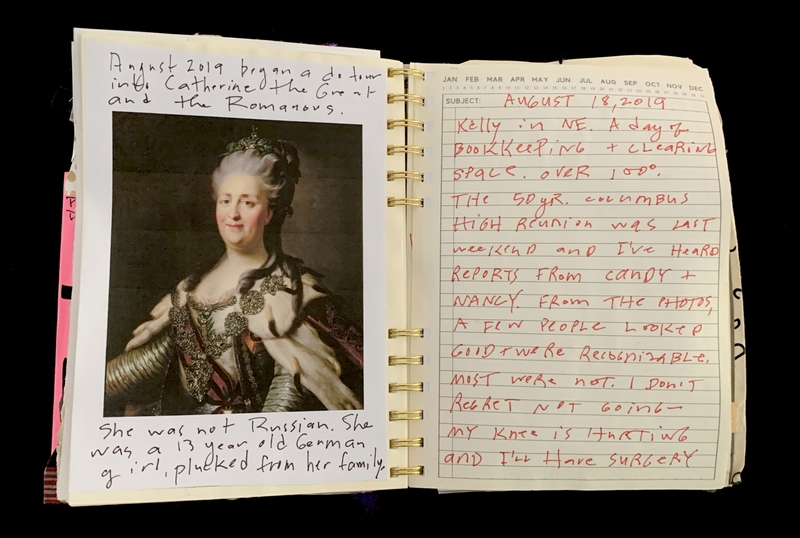 August 2019 began a detour
into Catherine the Great
and the Romanovs.
She was not Russian. She
was a 13 year old German
girl, plucked from her family.
JAN FEB MAR APR MAY JUN JUL AUG SEP OCT NOV DEC
SUBJECT: AUGUST 18, 2019
Kelly in NE. A day of
BOOKKEEPING + CLEARING
SPACE. OVER 100°.
THE 50 yr. COLUMBUS
HIGH REUNION WAS LAST
WEEKEND AND I'VE HEARD
REPORTS FROM CANDY +
NANCY. FROM THE PHOTOS,
A FEW PEOPLE LOOKED
GOOD + WERE RECOGNIZABLE.
MOST WERE NOT. I DON'T
REGRET NOT GOING—
MY KNEE IS HURTING
AND I'LL HAVE SURGERY